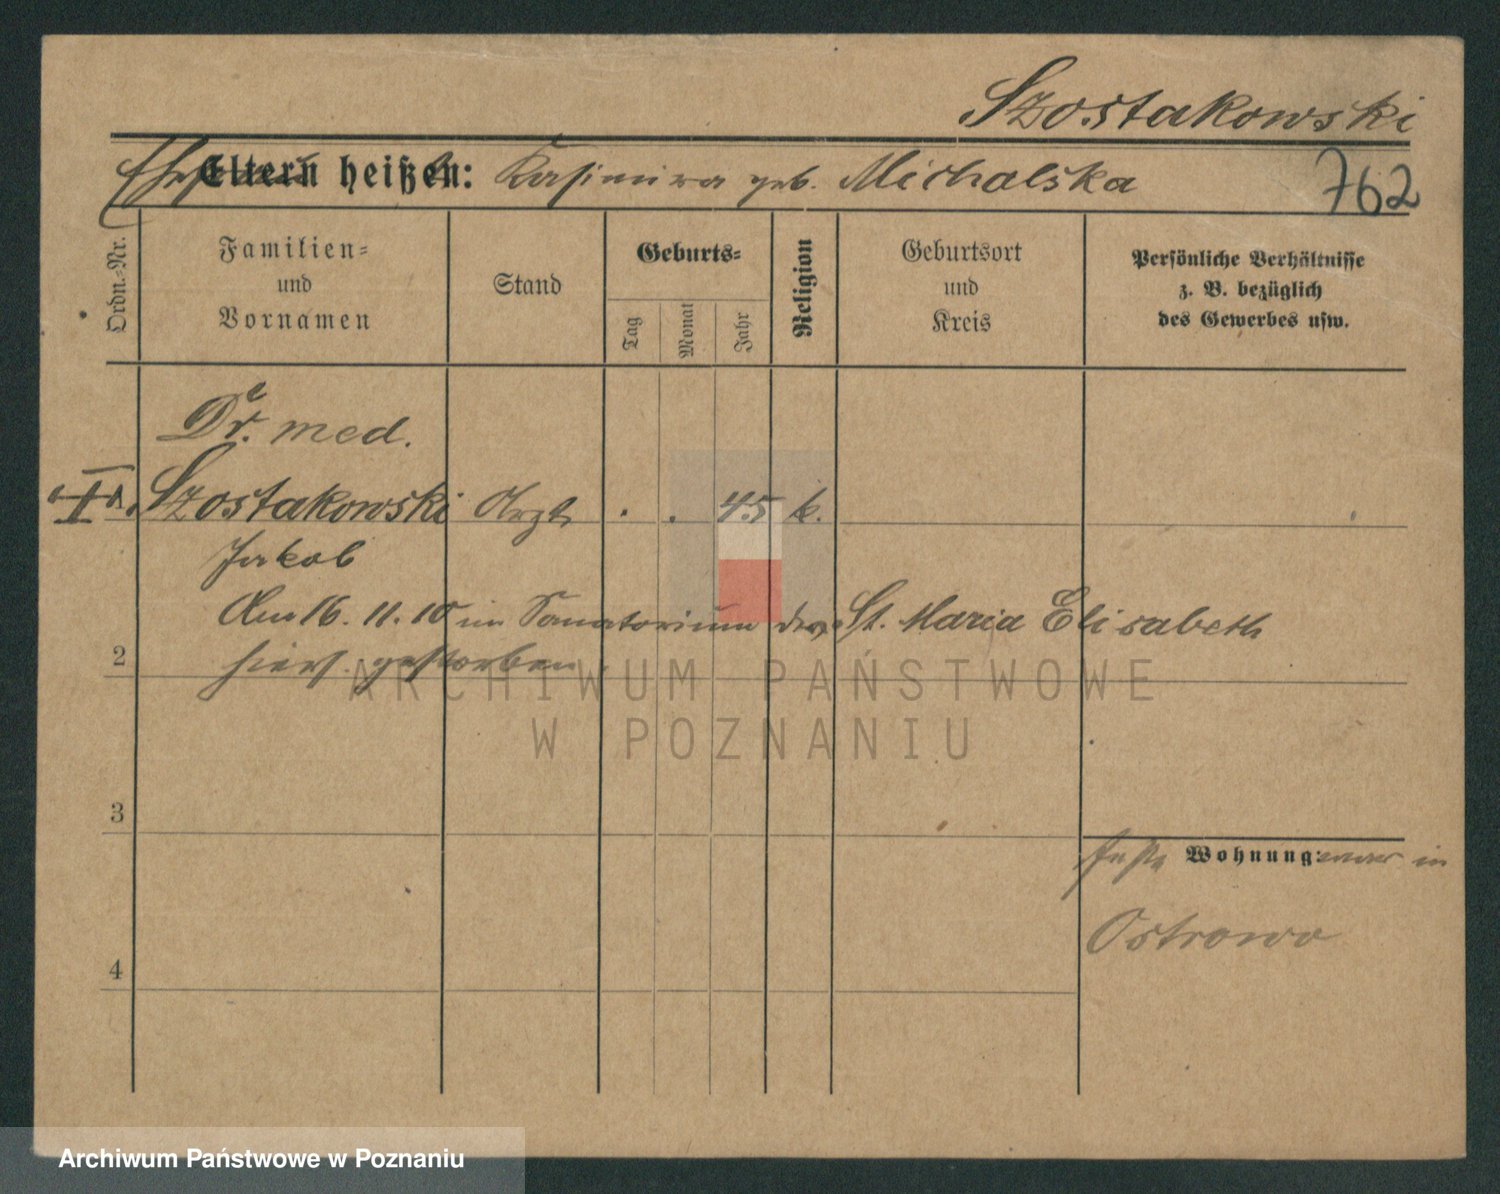 Szostakowski
Ehefrau Eltern heißen: Kasimira geb. Michalska
762
Ordn.-Nr.
Familien-
und
Vornamen
Stand
Geburts-
Tag
Monat
Jahr
Religion
Geburtsort
und
Kreis
Persönliche Verhältnisse
z. B. bezüglich
des Gewerbes usw.
Dr. med.
Szostakowski Arzt . . 45 k.
Jakob
Am 16. 11. 10 im Sanatorium der St. Maria Elisabeth
2 hiers. gestorben
ARCHIWUM PAŃSTWOWE
W POZNANIU
3
Wohnung: war in
Ostrowo
4
Archiwum Państwowe w Poznaniu